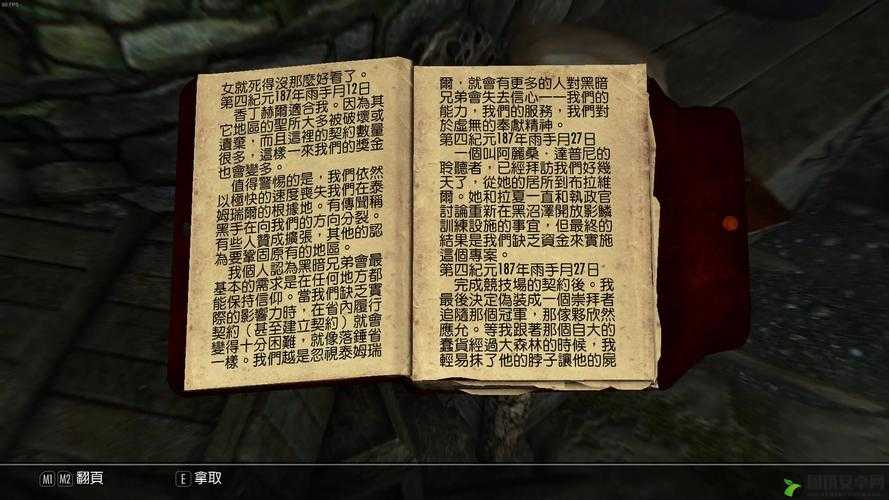 女就死得沒那麼好看了。
第四紀元187年雨手月12日
香丁赫爾適合我。因為其
它地區的聖所大多被破壞或
遺棄，而且這裡的契約數量
很多，這樣一來我們的獎金
也會變多。
值得警惕的是，我們依然
以極快的速度喪失我們在泰
姆瑞爾的根據地。有傳聞稱
黑手在向我們的方向分裂。
有些人贊成擴張，其他的認
為要鞏固原有的地區。
我個人認為黑暗兄弟會最
基本的需求是在任何地方都
能保持信仰。當我們缺乏實
際的影響力時，在省內履行
契約（甚至建立契約）就會
變得十分困難，就像落錘省
一樣。我們越是忽視泰姆瑞
爾，就會有更多的人對黑暗
兄弟會失去信心——我們的
能力，我們的服務，我們對
於虛無的奉獻精神。
第四紀元187年雨手月27日
一個叫阿麗桑，達普尼的
聆聽者，已經拜訪我們好幾
天了，從她的居所到布拉維
爾。她和拉夏一直和執政官
討論重新在黑沼澤開放影鱗
訓練設施的事宜，但最終的
結果是我們缺乏資金來實施
這個專案。
第四紀元187年雨手月27日
完成競技場的契約後。我
最後決定偽裝成一個崇拜者
追隨那個冠軍，那傢夥欣然
應允。等我跟著那個自大的
蠢貨經過大森林的時候，我
輕易抹了他的脖子讓他的屍
M1 M2 翻頁
E 拿取